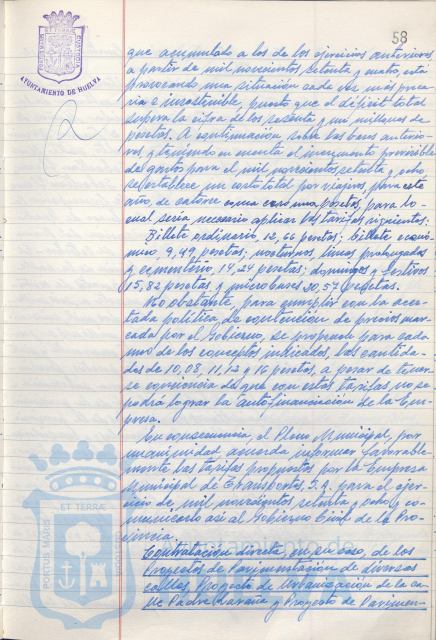 58
AYUNTAMIENTO DE HUELVA
que acumulado a los de los ejercicios anteriores
a partir de mil novecientos setenta y cuatro, está
provocando una situación cada vez más preca-
ria e insostenible, puesto que el déficit total
supera la cifra de los sesenta y mil millones de
pesetas. A continuación sobre las bases anterio-
res, y teniendo en cuenta el incremento previsible
de gastos para el mil novecientos setenta y ocho
se establece un costo total por viajero, para este
año, de catorce coma pesetas, para lo
cual sería necesario aplicar las tarifas siguientes:
Billete ordinario, 12,66 pesetas; billete econó-
mico, 9,49 pesetas; nocturnos, líneas prolongadas
y cementerio, 14,24 pesetas; domingos y festivos
15,82 pesetas y microbuses 30,57 pesetas.
No obstante, para cumplir con la acer-
tada política de contención de precios mar-
cada por el Gobierno, se proponen para cada
uno de los conceptos indicados, las cantida-
des de 10, 08, 11, 12 y 16 pesetas, a pesar de tener
se conciencia de que con estas tarifas no se
podrá lograr la autofinanciación de la Em-
presa.
En consecuencia, el Pleno Municipal, por
unanimidad acuerda informar favorable-
mente las tarifas propuestas por la Empresa
Municipal de Transportes, S.A. para el ejer-
cicio de mil novecientos setenta y ocho y co-
municarlo así al Gobierno Civil de la Pro-
vincia.
Contratación directa, en su caso, de los
Proyectos de Pavimentación de diversas
calles, Proyecto de Urbanización de la ca-
lle Padre Laraña y Proyecto de Pavimen-
Ayuntamiento de
PORTUS MARIS
ET TERRAE
CUSTODIA